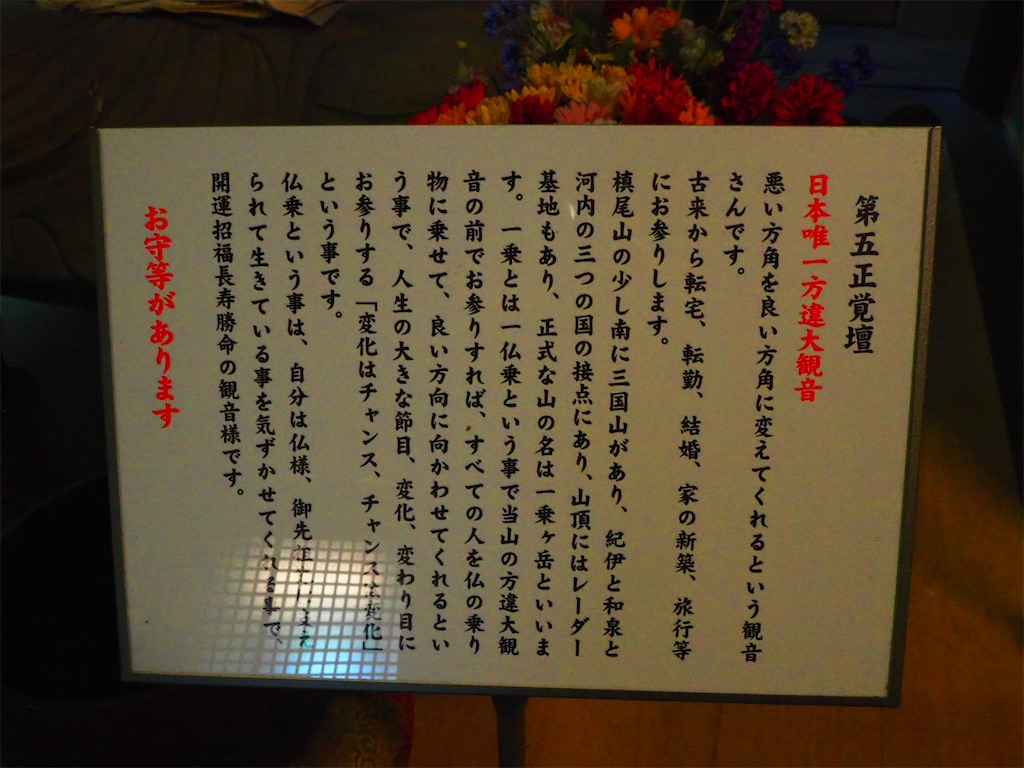 第五正覚壇
日本唯一方違大観音
悪い方角を良い方角に変えてくれるという観音
さんです。
古来から転宅、転勤、結婚、家の新築、旅行等
にお参りします。
槙尾山の少し南に三国山があり、紀伊と和泉と
河内の三つの国の接点にあり、山頂にはレーダー
基地もあり、正式な山の名は一乗ヶ岳といいま
す。一乗とは一仏乗という事で当山の方違大観
音の前でお参りすれば、すべての人を仏の乗り
物に乗せて、良い方向に向かわせてくれるとい
う事で、人生の大きな節目、変化、変わり目に
お参りする「変化はチャンス、チャンスは変化」
という事です。
仏乗という事は、自分は仏様、御先
られて生きている事を気ずかせてくれる事で、
開運招福長寿勝命の観音様です。
お守等があります